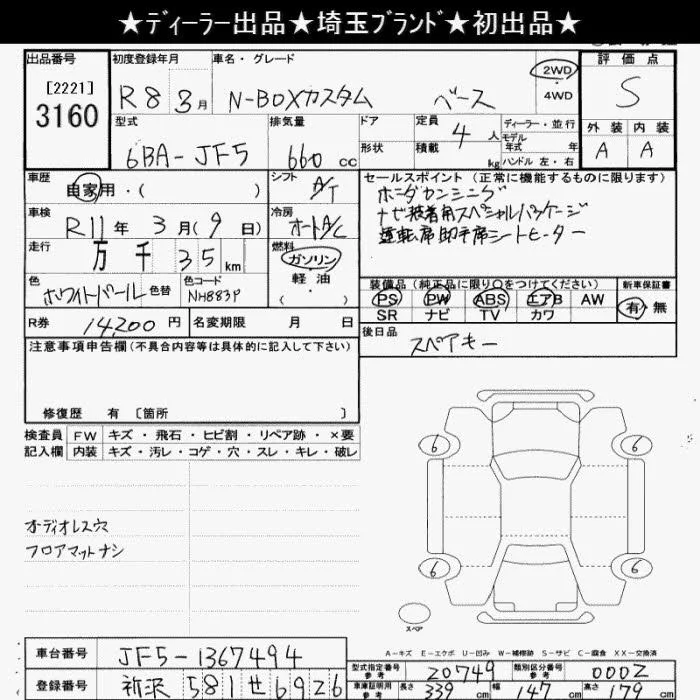 ★ディーラー出品★埼玉ブランド★初出品★
出品番号
[2221]
3160
初度登録年月
R8 3月
車名・グレード
N-BOXカスタム ベース
2WD
・
4WD
評価点
S
型式
6BA-JF5
排気量
660 cc
ドア
形状
定員
4 人
積載
kg
ディーラー・並行
モデル
年式 年
ハンドル 左・右
外装 内装
A A
車歴
自家用・( )
シフト
A/T
セールスポイント (正常に機能するものに限ります)
ホンダセンシング
ナビ装着用スペシャルパッケージ
運転席助手席シートヒーター
車検
R11年 3月(9日)
冷房
オートA/C
走行
万 千 35 km
燃料
ガソリン
・
軽油
( )
色
ホワイトパール 色替
色コード
NH883P
装備品 (純正品に限り○をつけてください)
PS PW ABS エアB AW
SR ナビ TV カワ
新車保証書
有・無
R券 14,200円
名変期限 月 日
後日品
スペアキー
注意事項申告欄 (不具合内容等は具体的に記入して下さい)
修復歴 有 〔箇所 〕
検査員
記入欄
FW キズ・飛石・ヒビ割・リペア跡・×要
内装 キズ・汚レ・コゲ・穴・スレ・キレ・破レ
オーディオレス穴
フロアマットナシ
6 6
6 6
スペア
A-キズ E-エクボ U-凹み W-補修跡 S-サビ C-腐食 XX-交換済
車台番号 JF5-1367494
登録番号 所沢 581 せ 6926
型式指定番号
参考
20749
類別区分番号
参考
0002
車庫証明用
参考
長さ 339 cm 幅 147 cm 高さ 179 cm